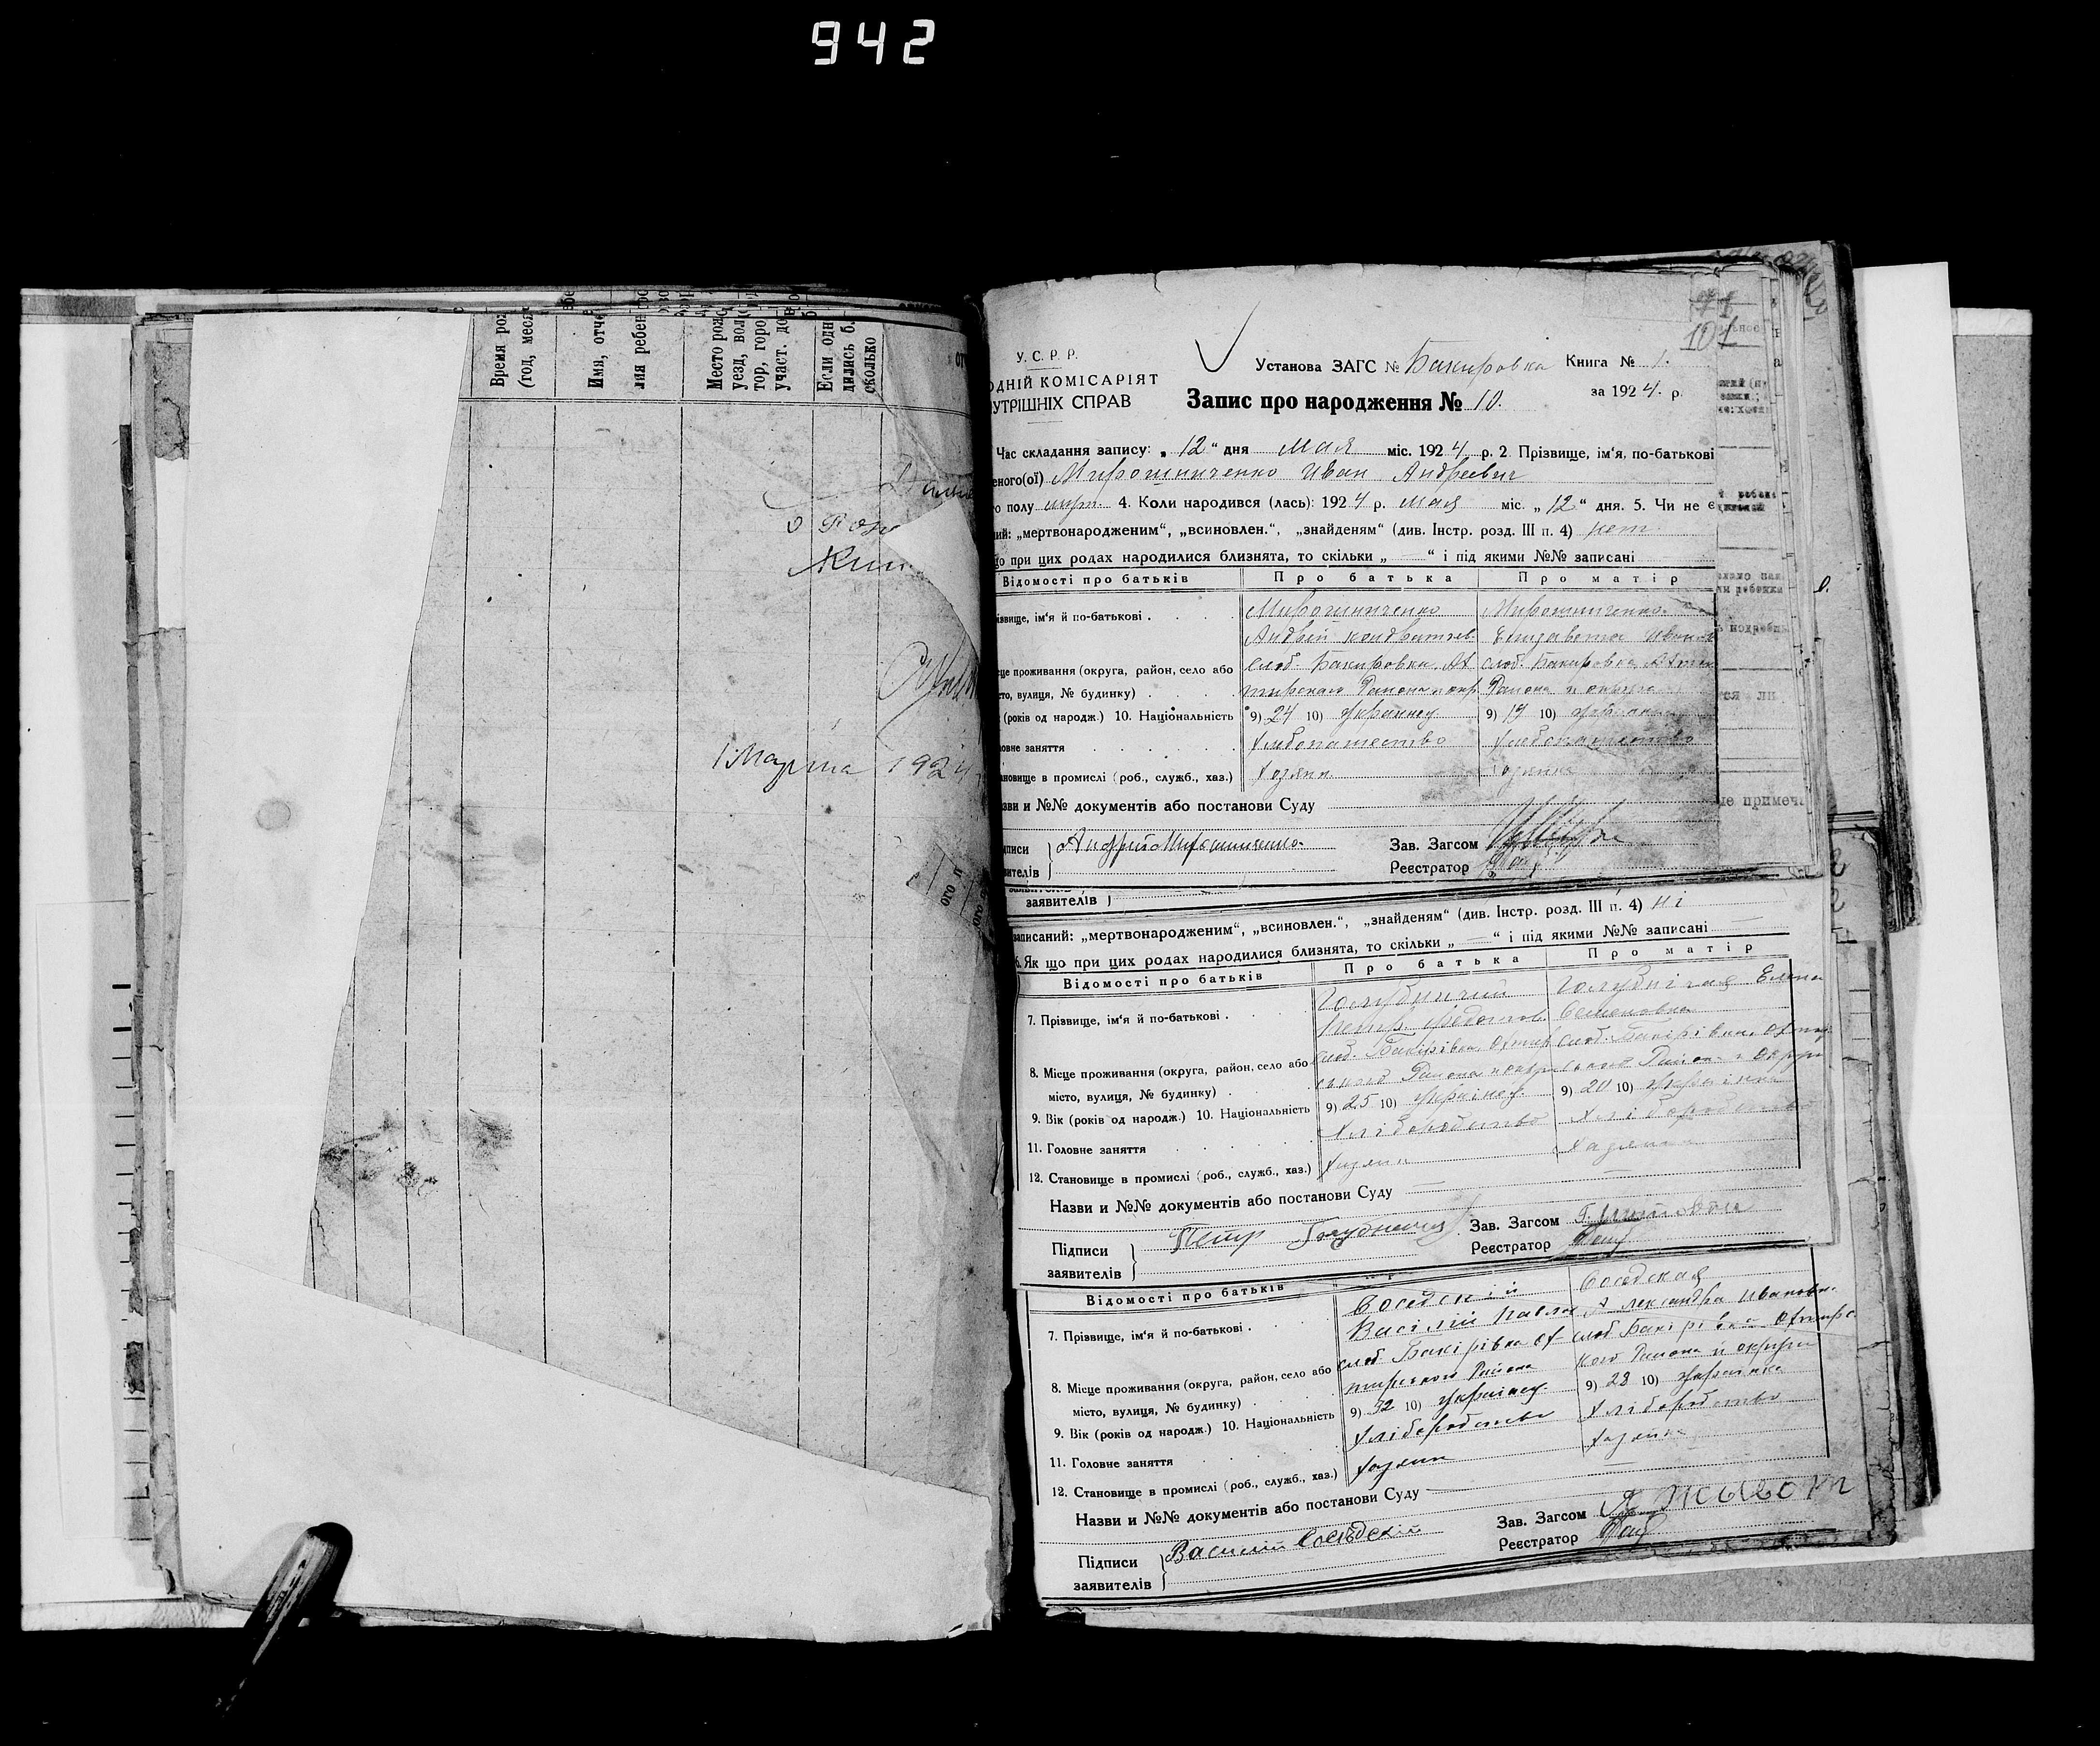 942
Время рож
(год, меся
Имя, отче
лия ребен
Место рож
уезд, вол
тор, горо
участ. до
Если одн
дились б.
сколько
1 Марта 1924
101
У. С. Р. Р.
ОДНІЙ КОМІСАРІЯТ
УТРІШНІХ СПРАВ
Установа ЗАГС № Бакировка Книга № 1.
за 1924. р.
Запис про народження № 10.
Час складання запису: „12“ дня мая міс. 1924 р. 2 Прізвище, ім'я, по-батькові
еного(ої) Мирошниченко Иван Андреевич
о полу муж. 4. Коли народився (лась): 1924 р. мая міс. „12“ дня. 5. Чи не є
ий: „мертвонародженим“, „всиновлен.“, „знайденям“ (див. Інстр. розд. III п. 4) нет
о при цих родах народилися близнята, то скільки „—“ і під якими №№ записані
Відомості про батьків Про батька Про матір
ізвище, ім'я й по-батькові . Мирошниченко Мирошниченко
Андрій Кондратьев. Елизавета Иванов
це проживання (округа, район, село або слоб. Бакировка, Ах слоб. Бакировка Ахты
сто, вулиця, № будинку) . тирскаго Района и окр. Района и округа
(років од народж.) 10. Національність 9) 24 10) Украинец 9) 19 10) Украинка
овне заняття Хлебопашество Хлебопашество
новище в промислі (роб., служб., хаз.) Хозяин Хозяйка
зви и №№ документів або постанови Суду
писи Андрей Мирошниченко Зав. Загсом
вителів Реєстратор
заявителів
записаний: „мертвонародженим“, „всиновлен.“, „знайденям“ (див. Інстр. розд. III п. 4) ні
6. Як що при цих родах народилися близнята, то скільки „—“ і під якими №№ записані
Відомості про батьків Про батька Про матір
7. Прізвище, ім'я й по-батькові . Голубничий Голубнічая Елена
Петр Федотов. Семеновна
8. Місце проживання (округа, район, село або слоб. Бакірівка, Охтир слоб. Бакірівка, Охтир
місто, вулиця, № будинку) . ського Района и окру ського Района и Округи
9. Вік (років од народж.) 10. Національність 9) 25 10) Українец. 9) 20 10) Українка
11. Головне заняття Хліборобство Хліборобство
12. Становище в промислі (роб., служб., хаз.) Хазяин Хазяйка
Назви и №№ документів або постанови Суду —
Підписи Петр Голубничий Зав. Загсом
заявителів Реєстратор
Відомості про батьків
7. Прізвище, ім'я й по-батькові . Соседскій Соседская
Василій Павлов Александра Ивановн.
8. Місце проживання (округа, район, село або слоб Бакірівка Ох слоб Бакірівка Охтирс
місто, вулиця, № будинку) . тирского Района кого Района и округи
9. Вік (років од народж.) 10. Національність 9) 32 10) Українец. 9) 28 10) Українка
11. Головне заняття Хліборобство Хліборобство
12. Становище в промислі (роб., служб., хаз.) Хазяин Хазяйка
Назви и №№ документів або постанови Суду —
Підписи Василий Соседскій Зав. Загсом Я. Живот
заявителів Реєстратор